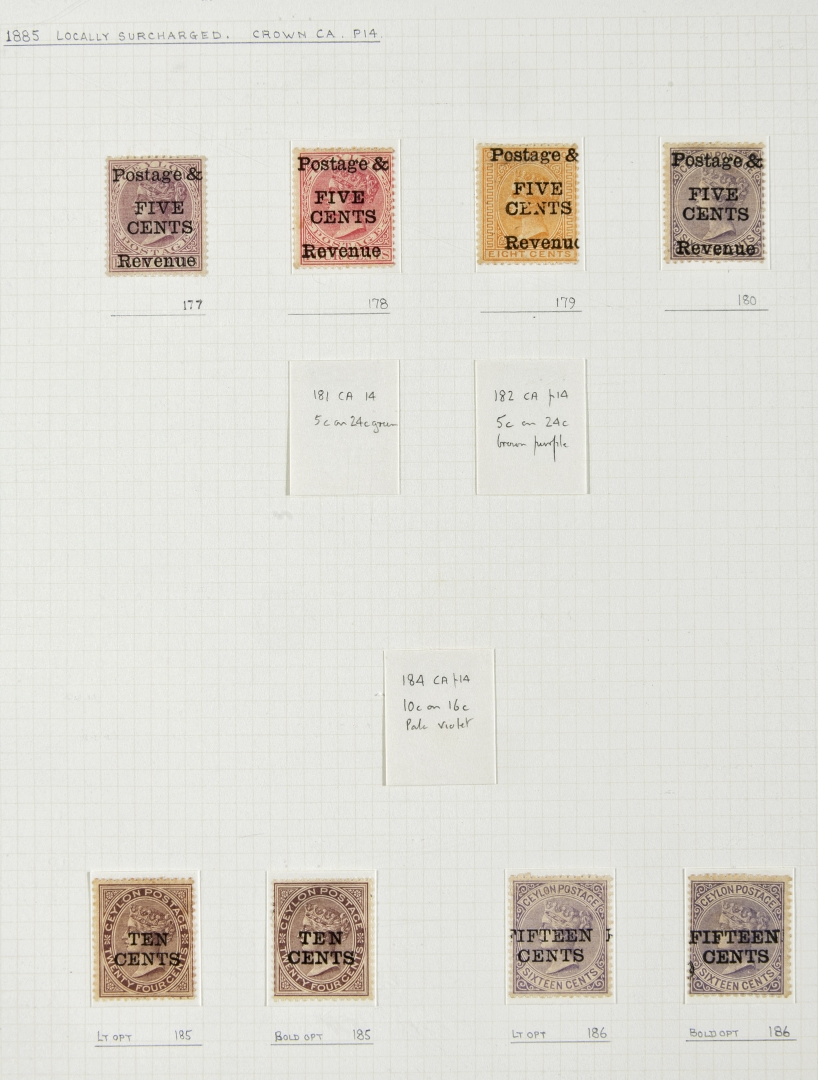 1885 LOCALLY SURCHARGED. CROWN CA. P14.
Postage &
FIVE
CENTS
POSTAGE
Revenue
177
Postage &
FIVE
CENTS
POSTAGE
Revenue
178
Postage &
FIVE
CENTS
Revenu
EIGHT CENTS
179
Postage &
FIVE
CENTS
Revenue
180
181 CA 14
5c on 24c green
182 CA p14
5c on 24c
brown purple
184 CA p14
10c on 16c
Pale violet
CEYLON POSTAGE
TEN
CENTS
TWENTY FOUR CENTS
LT OPT 185
CEYLON POSTAGE
TEN
CENTS
TWENTY FOUR CENTS
BOLD OPT 185
CEYLON POSTAGE
FIFTEEN F
CENTS
SIXTEEN CENTS
LT OPT 186
CEYLON POSTAGE
FIFTEEN
CENTS
SIXTEEN CENTS
BOLD OPT 186